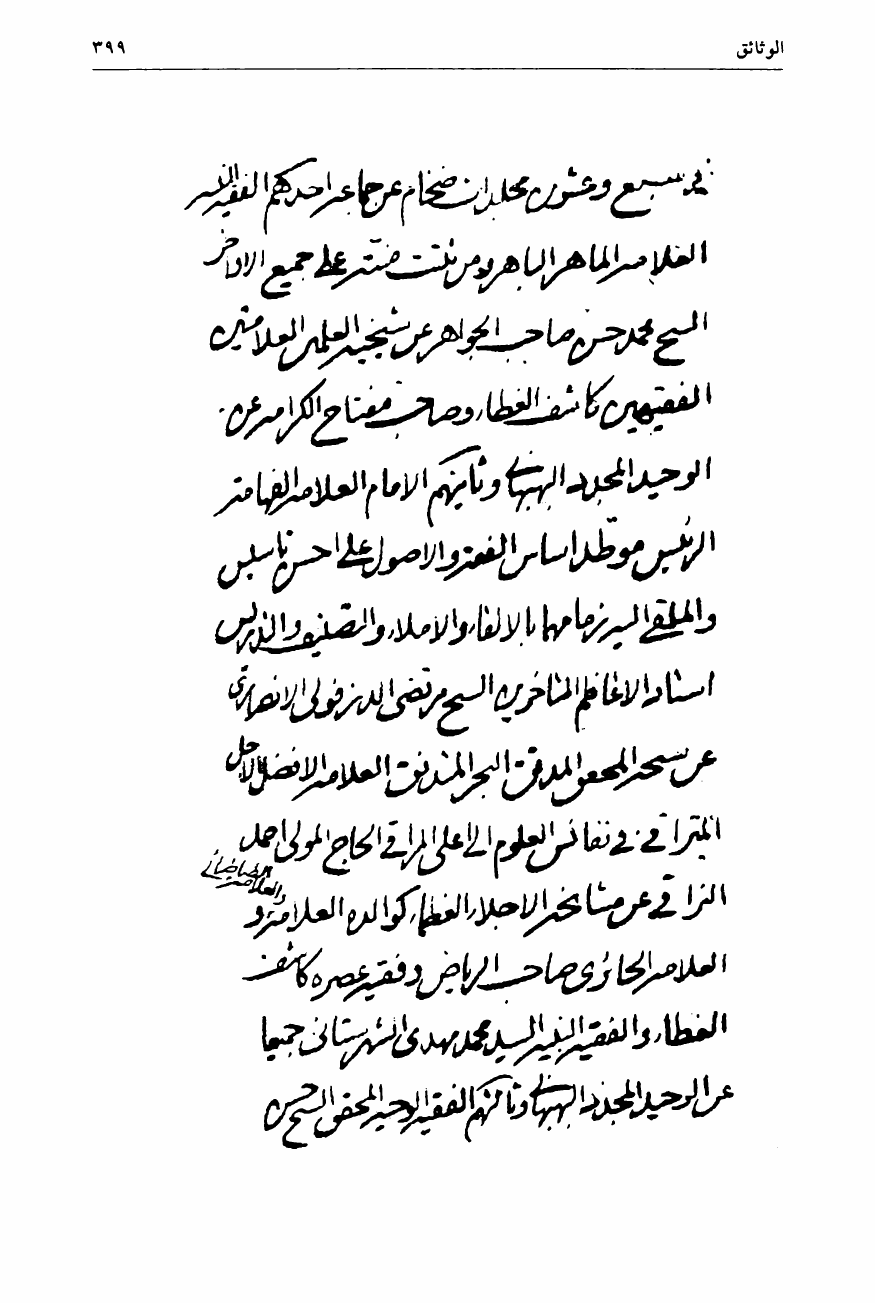 الوثائق ٣٩٩
في سبع وعشرين مجلدات ضخام عن جماعة احدهم الفقيه
العلامة الماهر الباهر ومن ثبتت منته على جميع الاواخر
الشيخ محمد حسن صاحب الجواهر عن شيخيه العلمين العلامتين
الفقيهين كاشف الغطاء وصاحب مفتاح الكرامة عن
الوحيد المجدد البهبهاني وثانيهم الامام العلامة الفهامة
الرئيس موطد اساس الفقه والاصول على احسن تاسيس
والملقى اليه زمامهما بالالقاء والاملاء والتصنيف والتدريس
استاد الاعاظم المتاخرين الشيخ مرتضى الدزفولي الانصاري
عن شيخه المحقق المدقق البحر المتدفق العلامة الافضل الاجل
المتراقي في نفائس العلوم الى اعلى المراقي الحاج المولى احمد
النراقي عن مشايخه الاجلاء العظماء كوالده العلامة و
العلامة الطباطبائي
العلامة الحائري صاحب الرياض وفقيه عصره كاشف
الغطاء والفقيه النبيه السيد محمد مهدى الشهرستاني جميعا
عن الوحيد المجدد البهبهاني وثالثهم الفقيه الوجيه المحقق الشيخ حسن